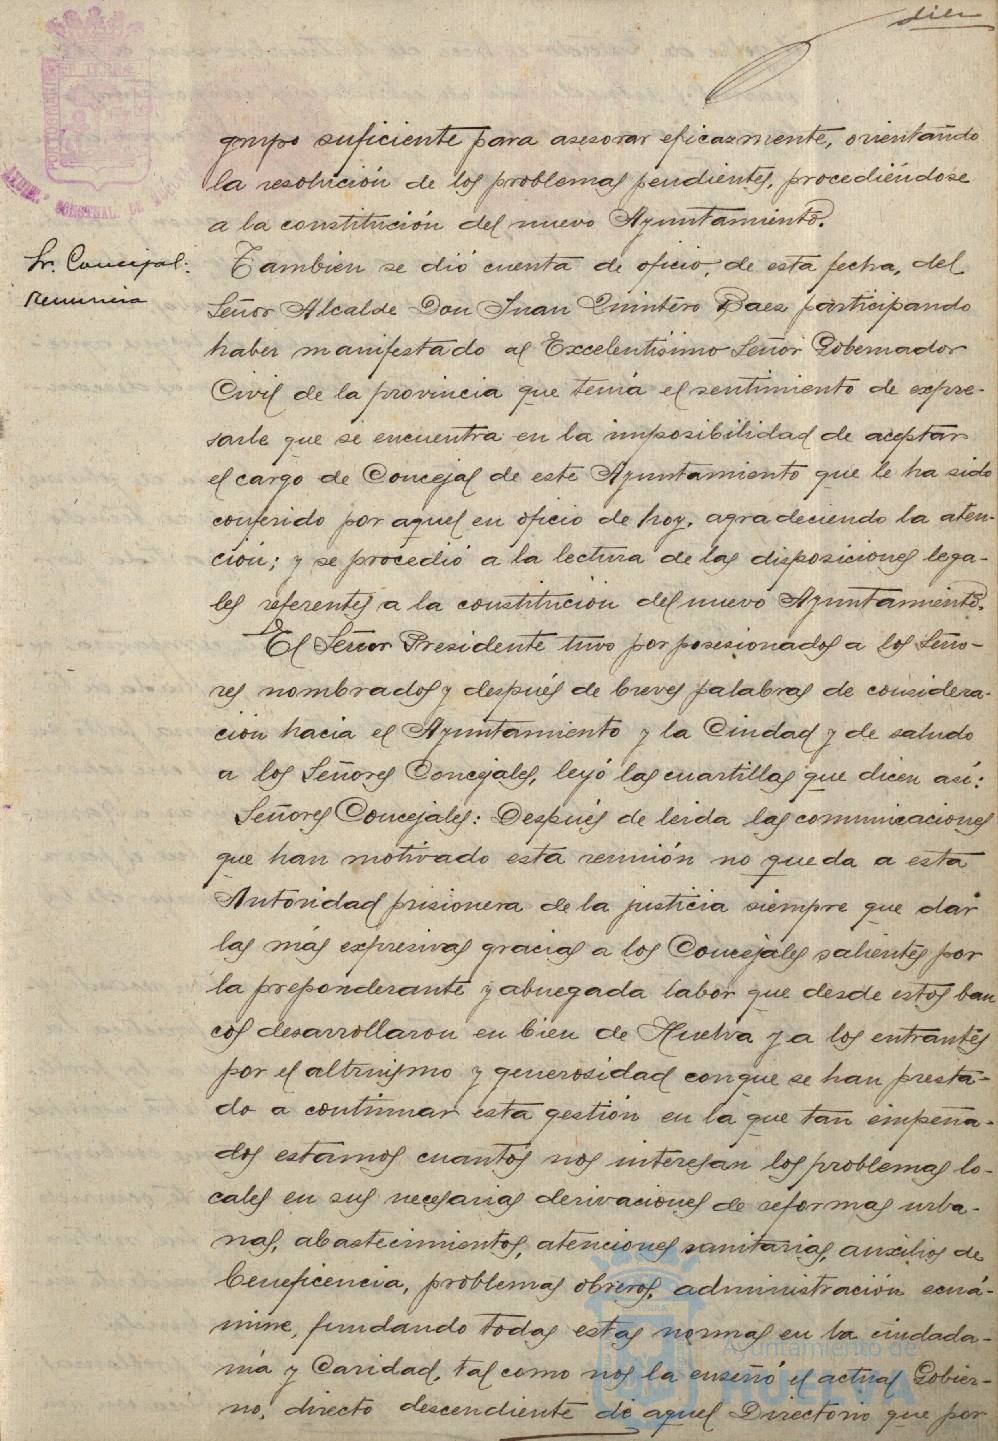 diez
grupo suficiente para asesorar eficazmente, orientando
la resolución de los problemas pendientes, procediéndose
a la constitución del nuevo Ayuntamiento.
Sr. Concejal:
Renuncia
También se dió cuenta de oficio, de esta fecha, del
Señor Alcalde Don Juan Quintero Baez participando
haber manifestado al Excelentísimo Señor Gobernador
Civil de la provincia que tenía el sentimiento de expre-
sarle que se encuentra en la imposibilidad de aceptar
el cargo de Concejal de este Ayuntamiento que le ha sido
conferido por aquel en oficio de hoy, agradeciendo la aten-
ción; y se procedió a la lectura de las disposiciones lega-
les referentes a la constitución del nuevo Ayuntamiento.
El Señor Presidente tuvo por posesionados a los Seño-
res nombrados y después de breves palabras de considera-
ción hacia el Ayuntamiento y la Ciudad y de saludo
a los Señores Concejales, leyó las cuartillas que dicen así:
Señores Concejales: Después de leida las comunicaciones
que han motivado esta reunión no queda a esta
Autoridad prisionera de la justicia siempre que dar
las más expresivas gracias a los Concejales salientes por
la preponderante y abnegada labor que desde estos ban
cos desarrollaron en bien de Huelva y a los entrantes
por el altruismo y generosidad conque se han presta-
do a continuar esta gestión en la que tan empeña-
dos estamos cuantos nos interesan los problemas lo-
cales en sus necesarias derivaciones de reformas urba-
nas, abastecimientos, atenciones sanitarias, auxilios de
beneficencia, problemas obreros, administración ecuá-
nime, fundando todas estas normas en la ciudada-
nía y Caridad, tal como nos la enseñó el actual Gobier-
no, directo descendiente de aquel Directorio que por
Ayuntamiento de
HUELVA